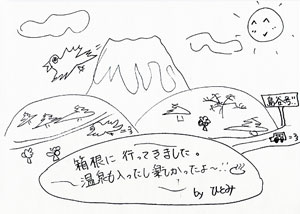 島谷号!!
箱根に行ってきました。
温泉も入ったし楽しかったよ〜…♨
by ひとみ